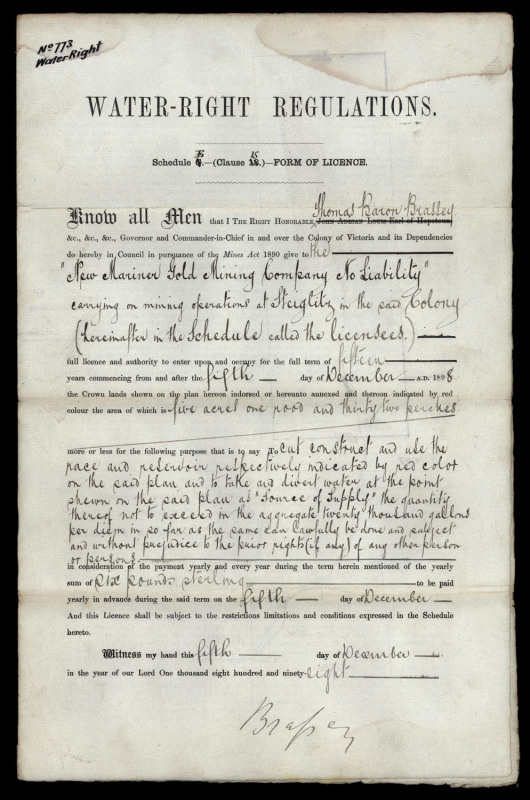 No 773
Water Right
WATER-RIGHT REGULATIONS.
Schedule 5.—(Clause 15.)—FORM OF LICENCE.
Thomas Baron Brassey
Know all Men that I THE RIGHT HONORABLE, John Adrian Louis Earl of Hopetoun
&c., &c., &c., Governor and Commander-in-Chief in and over the Colony of Victoria and its Dependencies
do hereby in Council in pursuance of the Mines Act 1890 give to the
"New Mariner Gold Mining Company No Liability"
carrying on mining operations at Steiglitz in the said Colony
(hereinafter in the Schedule called the licensees.)
full licence and authority to enter upon and occupy for the full term of fifteen
years commencing from and after the fifth day of December A.D. 1898
the Crown lands shown on the plan hereon indorsed or hereunto annexed and thereon indicated by red
colour the area of which is five acres one rood and thirty two perches
more or less for the following purpose that is to say To cut construct and use the
race and reservoir respectively indicated by red color
on the said plan and to take and divert water at the point
shewn on the said plan as "Source of Supply" the quantity
thereof not to exceed in the aggregate twenty thousand gallons
per diem in so far as the same can lawfully be done and subject
and without prejudice to the prior rights (if any) of any other person
or persons
in consideration of the payment yearly and every year during the term herein mentioned of the yearly
sum of six pounds sterling to be paid
yearly in advance during the said term on the fifth day of December
And this Licence shall be subject to the restrictions limitations and conditions expressed in the Schedule
hereto.
Witness my hand this fifth day of December
in the year of our Lord One thousand eight hundred and ninety-eight
Brassey